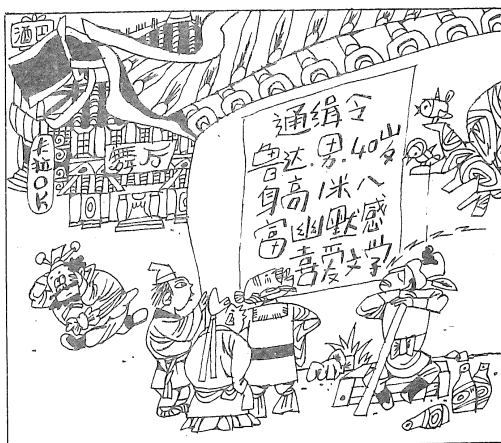 酒巴
卡拉OK
通缉令
鲁达.男.40岁
身高1米八
富幽默感
喜爱文学